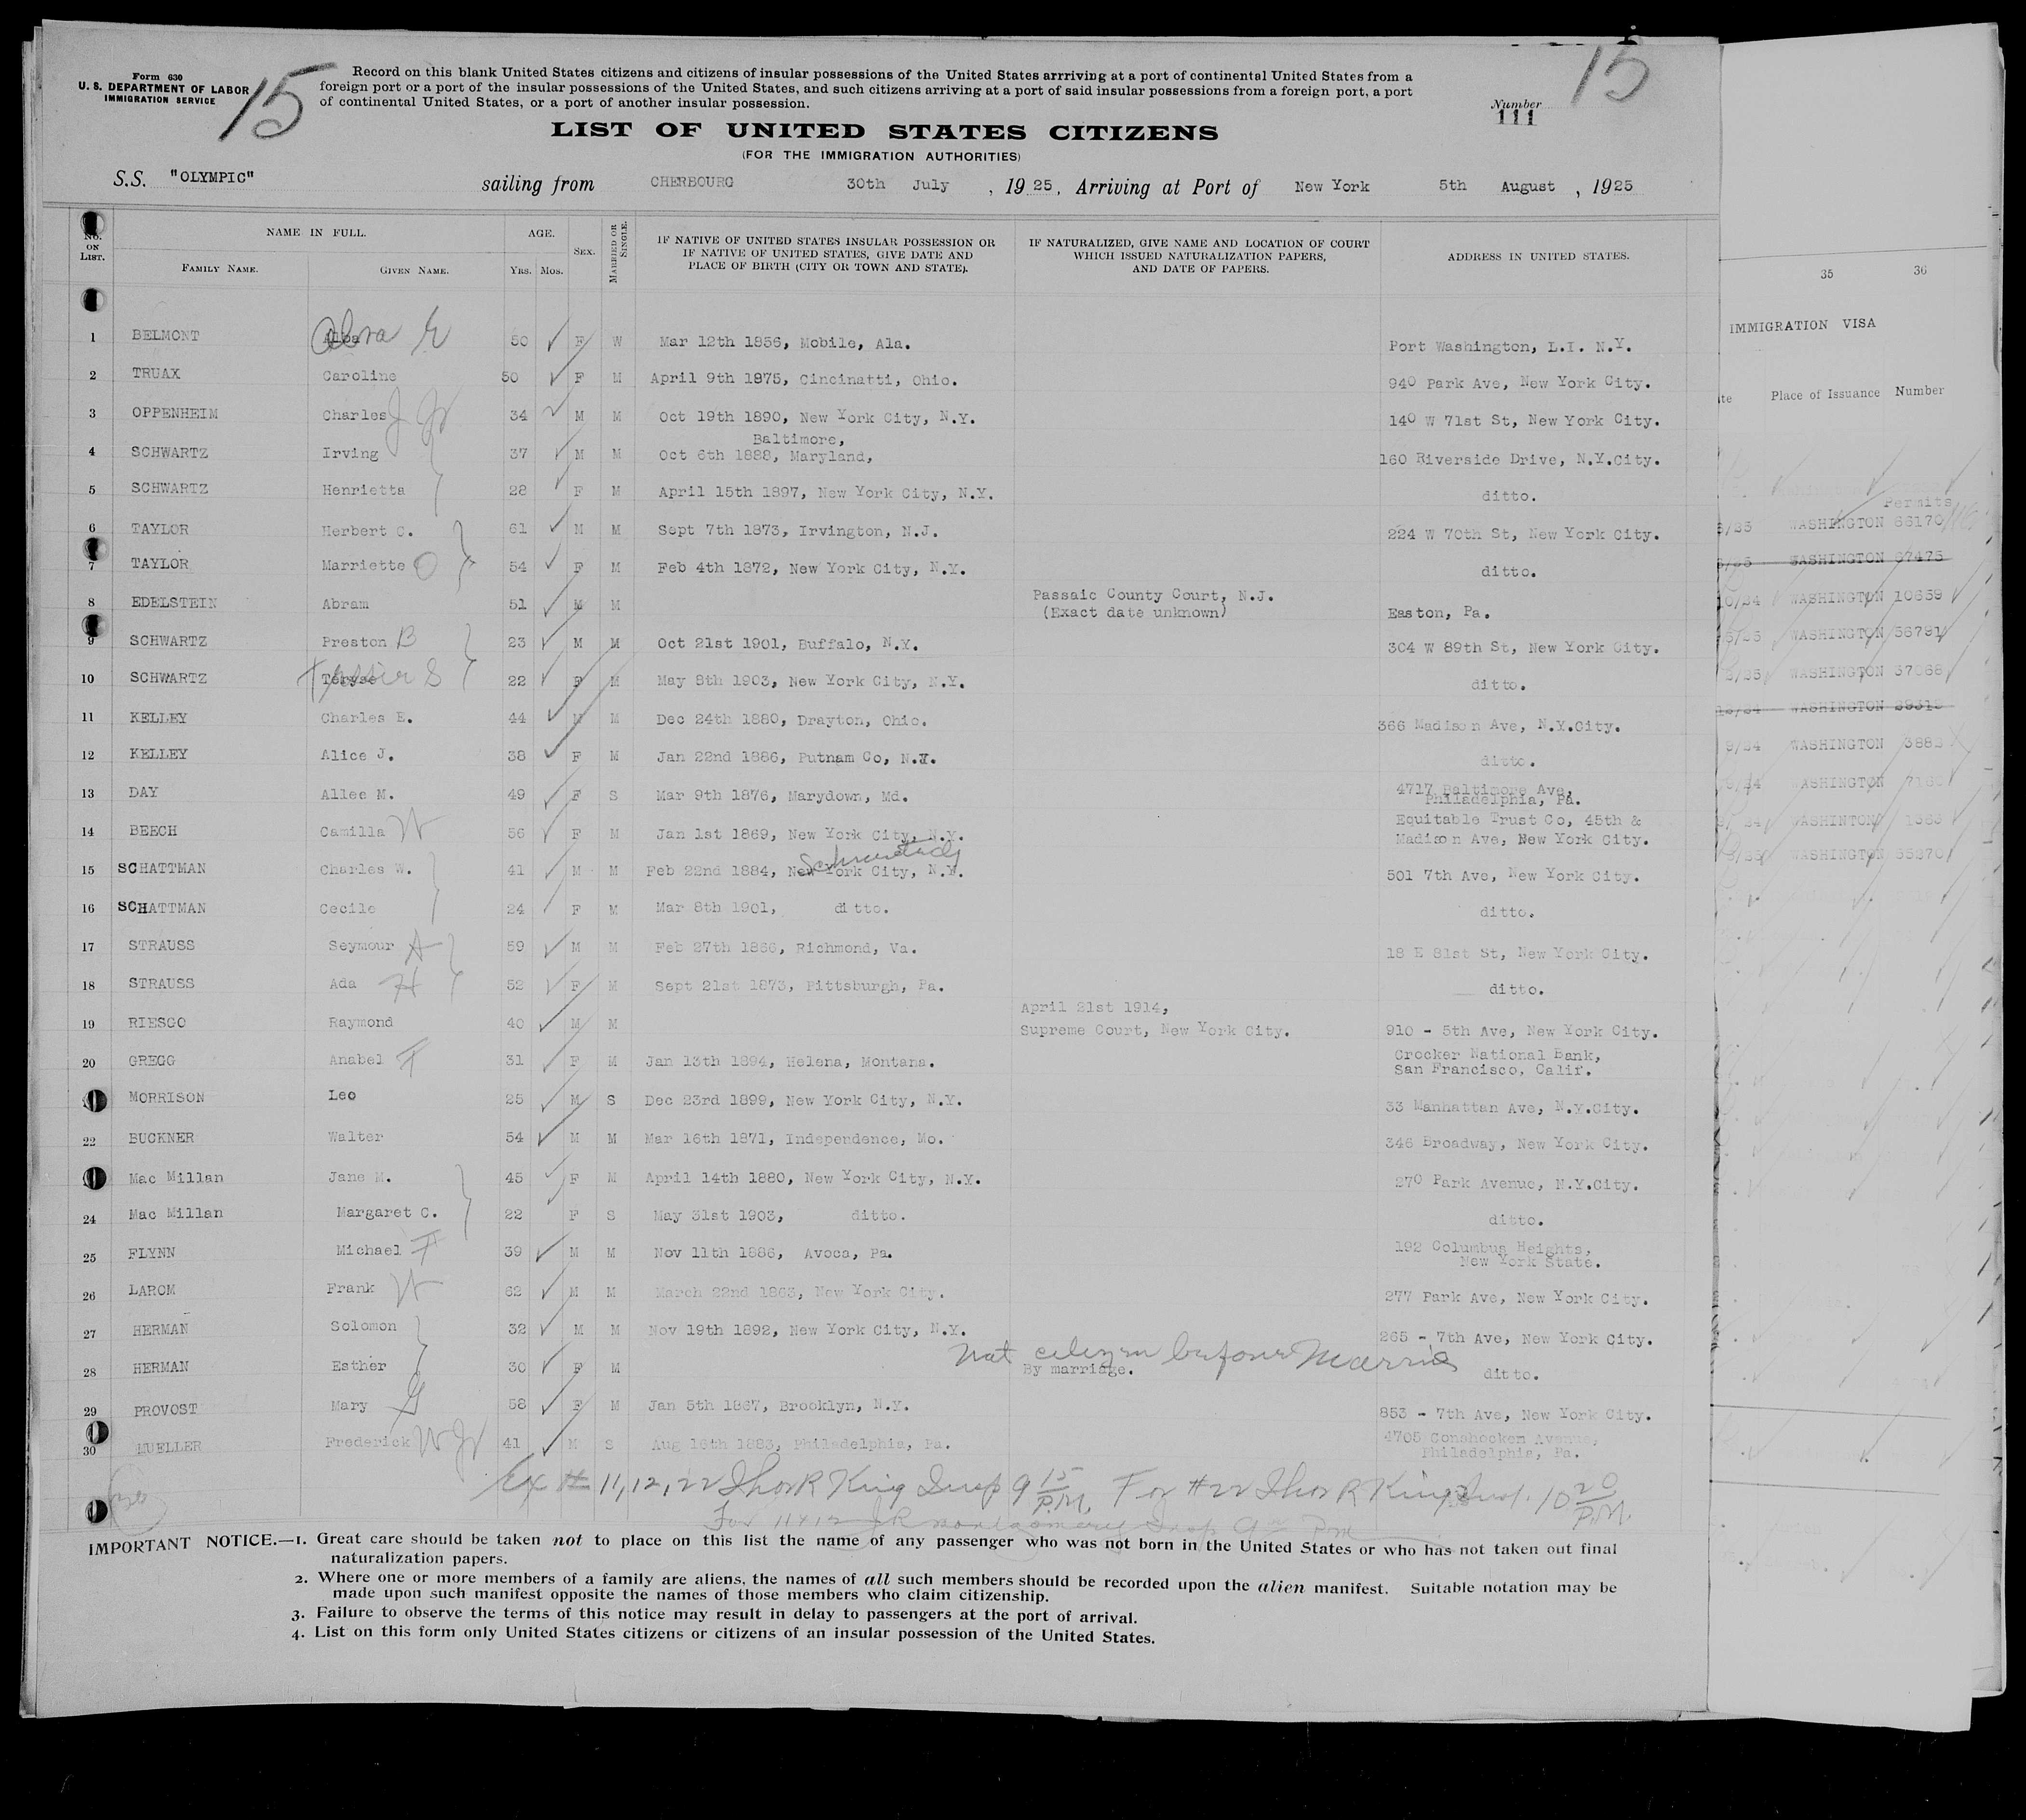 Form 630
U. S. DEPARTMENT OF LABOR
IMMIGRATION SERVICE
15
Record on this blank United States citizens and citizens of insular possessions of the United States arrriving at a port of continental United States from a
foreign port or a port of the insular possessions of the United States, and such citizens arriving at a port of said insular possessions from a foreign port, a port
of continental United States, or a port of another insular possession.
15
Number
111
LIST OF UNITED STATES CITIZENS
(FOR THE IMMIGRATION AUTHORITIES)
S.S. "OLYMPIC" sailing from CHERBOURG 30th July , 1925, Arriving at Port of New York 5th August , 1925
No. ON LIST. NAME IN FULL. AGE. SEX. MARRIED OR SINGLE. IF NATIVE OF UNITED STATES INSULAR POSSESSION OR IF NATIVE OF UNITED STATES, GIVE DATE AND PLACE OF BIRTH (CITY OR TOWN AND STATE). IF NATURALIZED, GIVE NAME AND LOCATION OF COURT WHICH ISSUED NATURALIZATION PAPERS, AND DATE OF PAPERS. ADDRESS IN UNITED STATES.
FAMILY NAME. GIVEN NAME. YRS. MOS.
1 BELMONT Alva E 50 F W Mar 12th 1856, Mobile, Ala. Port Washington, L.I. N.Y.
2 TRUAX Caroline 50 F M April 9th 1875, Cincinatti, Ohio. 940 Park Ave, New York City.
3 OPPENHEIM Charles J Jr 34 M M Oct 19th 1890, New York City, N.Y. 140 W 71st St, New York City.
Baltimore,
4 SCHWARTZ Irving 37 M M Oct 6th 1888, Maryland, 160 Riverside Drive, N.Y.City.
5 SCHWARTZ Henrietta 28 F M April 15th 1897, New York City, N.Y. ditto.
6 TAYLOR Herbert C. 61 M M Sept 7th 1873, Irvington, N.J. 224 W 70th St, New York City.
7 TAYLOR Marriette O 54 F M Feb 4th 1872, New York City, N.Y. ditto.
8 EDELSTEIN Abram 51 M M Passaic County Court, N.J.
(Exact date unknown) Easton, Pa.
9 SCHWARTZ Preston B 23 M M Oct 21st 1901, Buffalo, N.Y. 304 W 89th St, New York City.
10 SCHWARTZ S 22 F M May 8th 1903, New York City, N.Y. ditto.
11 KELLEY Charles E. 44 M M Dec 24th 1880, Drayton, Ohio. 366 Madison Ave, N.Y.City.
12 KELLEY Alice J. 38 F M Jan 22nd 1886, Putnam Co, N.Y. ditto.
13 DAY Allee M. 49 F S Mar 9th 1876, Marydown, Md. 4717 Baltimore Ave,
Philadelphia, Pa.
14 BEECH Camilla W 56 F M Jan 1st 1869, New York City, N.Y. Equitable Trust Co, 45th &
Madison Ave, New York City.
Schenectady
15 SCHATTMAN Charles W. 41 M M Feb 22nd 1884, New York City, N.Y. 501 7th Ave, New York City.
16 SCHATTMAN Cecile 24 F M Mar 8th 1901, ditto. ditto.
17 STRAUSS Seymour A 59 M M Feb 27th 1866, Richmond, Va. 18 E 81st St, New York City.
18 STRAUSS Ada H 52 F M Sept 21st 1873, Pittsburgh, Pa. ditto.
April 21st 1914,
19 RIESGO Raymond 40 M M Supreme Court, New York City. 910 - 5th Ave, New York City.
20 GREGG Anabel F 31 F M Jan 13th 1894, Helena, Montana. Crocker National Bank,
San Francisco, Calif.
MORRISON Leo 25 M S Dec 23rd 1899, New York City, N.Y. 33 Manhattan Ave, N.Y.City.
22 BUCKNER Walter 54 M M Mar 16th 1871, Independence, Mo. 346 Broadway, New York City.
Mac Millan Jane M. 45 F M April 14th 1880, New York City, N.Y. 270 Park Avenue, N.Y.City.
24 Mac Millan Margaret C. 22 F S May 31st 1903, ditto. ditto.
25 FLYNN Michael F 39 M M Nov 11th 1886, Avoca, Pa. 192 Columbus Heights,
New York State.
26 LAROM Frank W 62 M M March 22nd 1863, New York City. 277 Park Ave, New York City.
27 HERMAN Solomon 32 M M Nov 19th 1892, New York City, N.Y. 265 - 7th Ave, New York City.
Not citizen before Marriage
28 HERMAN Esther 30 F M By marriage. ditto.
29 PROVOST Mary G 58 F M Jan 5th 1867, Brooklyn, N.Y. 853 - 7th Ave, New York City.
30 MUELLER Frederick W Jr 41 M S Aug 16th 1883, Philadelphia, Pa. 4705 Conshocken Avenue,
Philadelphia, Pa.
Ex # 11, 12, 22 Thos R King Insp 9 15 P.M. For #22 Thos R King Insp. 10 20 P.M.
For 11 & 12 J R Montgomery Insp 9 PM
IMPORTANT NOTICE.—1. Great care should be taken not to place on this list the name of any passenger who was not born in the United States or who has not taken out final
naturalization papers.
2. Where one or more members of a family are aliens, the names of all such members should be recorded upon the alien manifest. Suitable notation may be
made upon such manifest opposite the names of those members who claim citizenship.
3. Failure to observe the terms of this notice may result in delay to passengers at the port of arrival.
4. List on this form only United States citizens or citizens of an insular possession of the United States.
35 36
IMMIGRATION VISA
Place of Issuance Number
Permits
WASHINGTON 66170
WASHINGTON 67475
WASHINGTON 10659
WASHINGTON 56791
WASHINGTON 37068
WASHINGTON 39313
WASHINGTON
WASHINGTON
WASHINTON
WASHINGTON 35370